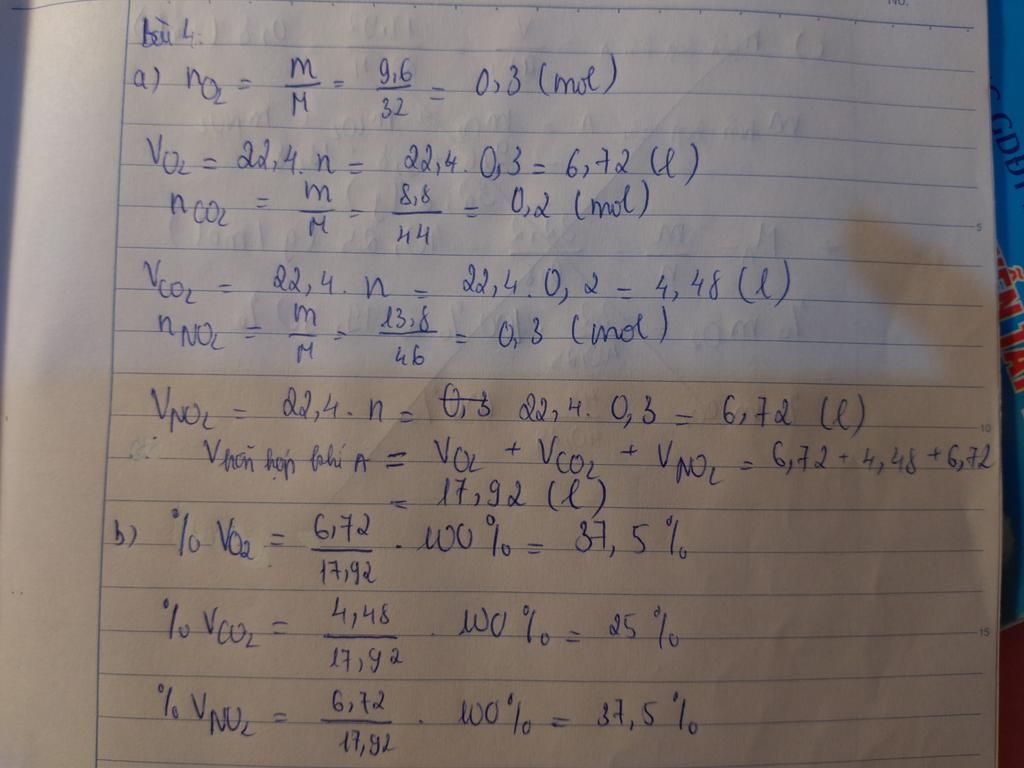 No.
bài 4:
a) nO₂ = m/M = 9,6/32 = 0,3 (mol)
VO₂ = 22,4 . n = 22,4 . 0,3 = 6,72 (l)
nCO₂ = m/M = 8,8/44 = 0,2 (mol)
VCO₂ = 22,4 . n = 22,4 . 0,2 = 4,48 (l)
nNO₂ = m/M = 13,8/46 = 0,3 (mol)
VNO₂ = 22,4 . n = 0,3 22,4 . 0,3 = 6,72 (l)
Vhỗn hợp khí A = VO₂ + VCO₂ + VNO₂ = 6,72 + 4,48 + 6,72
= 17,92 (l)
b) % VO₂ = 6,72/17,92 . 100% = 37,5 %
% VCO₂ = 4,48/17,92 . 100% = 25 %
% VNO₂ = 6,72/17,92 . 100% = 37,5 %
5
10
15
GDĐT